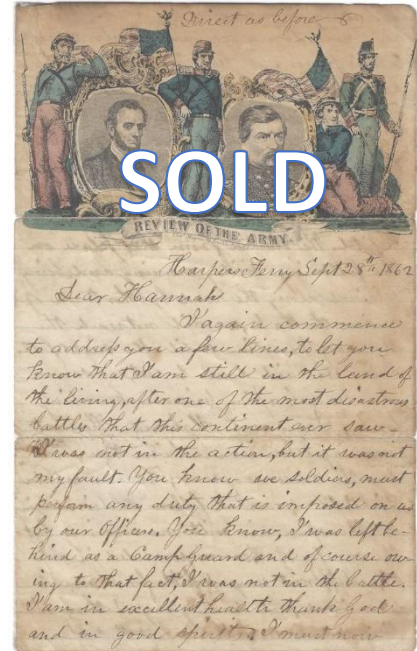 Direct as before
SOLD
REVIEW OF THE ARMY.
Harpers Ferry Sept 28th 1862
Dear Hannah
I again commence
to address you a few lines, to let you
know that I am still in the land of
the living, after one of the most disastrous
battles that this continent ever saw.
I was not in the action, but it was not
my fault. You know we soldiers, must
perform any duty that is imposed on us
by our Officers. You know, I was left be-
hind as a Camp guard and of course ow-
ing to that fact, I was not in the battle.
I am in excellent health thank God
and in good spirits. I must now